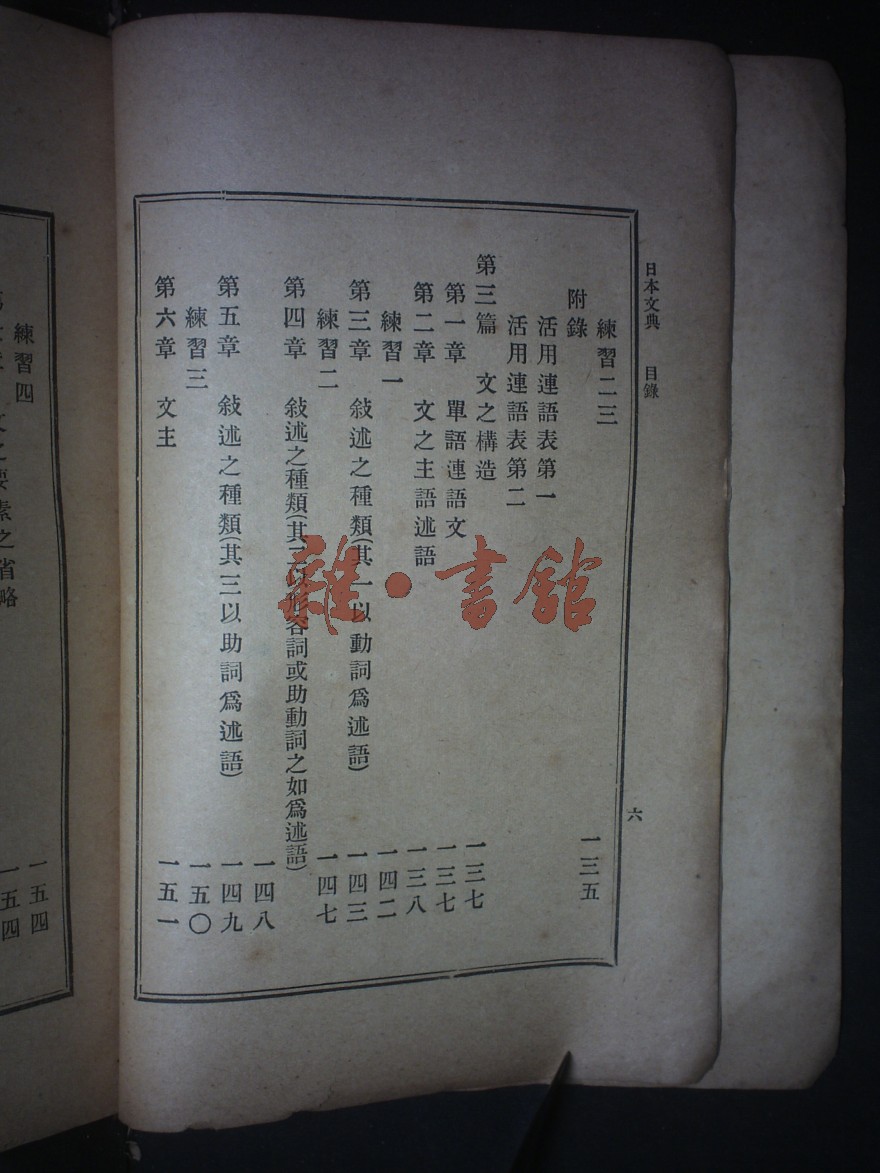 日本文典 目錄 六
練習二三 一三五
附錄
活用連語表第一
活用連語表第二
第三篇 文之構造 一三七
第一章 單語連語文 一三七
第二章 文之主語述語 一三八
練習一 一四二
第三章 敍述之種類(其一以動詞爲述語) 一四三
練習二 一四七
第四章 敍述之種類(其二以形容詞或助動詞之如爲述語)
一四八
第五章 敍述之種類(其三以助詞爲述語) 一四九
練習三 一五〇
第六章 文主 一五一
練習四 一五四
文之要素之省略 一五四
雜·書館